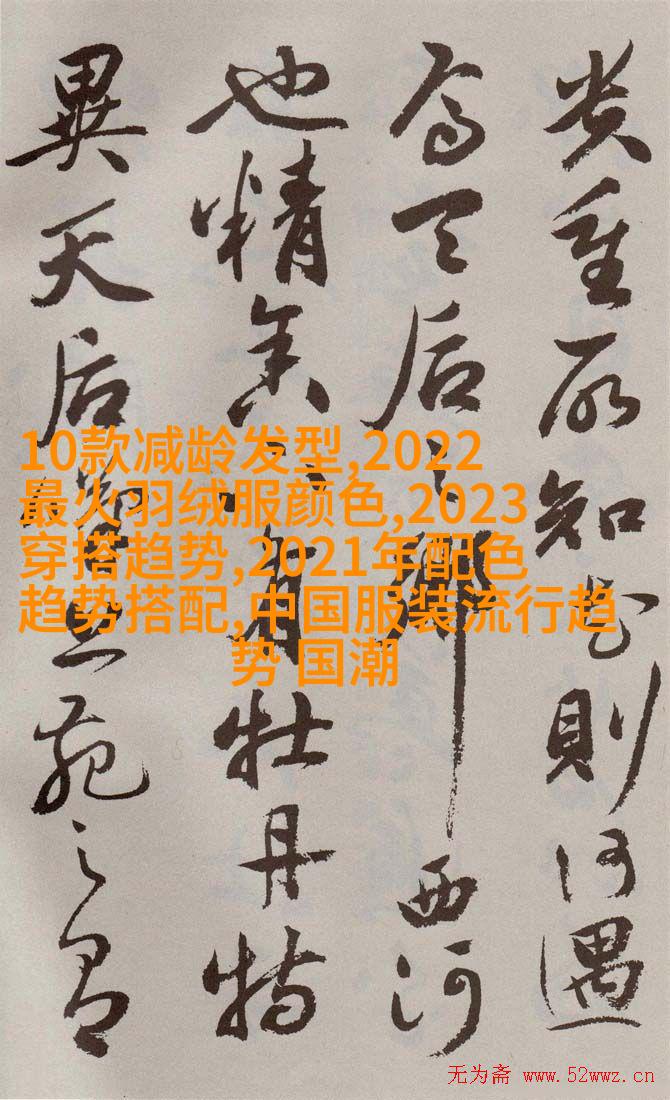 貴重所知花則何遇
焉天后之鄉西河
也精舍下有牡丹特
異天后歎上苑之有
10款减龄发型,2022
最火羽绒服颜色,2023
穿搭趋势,2021年配色
趋势搭配,中国服装流行趋
势 国潮
无为斋 www.52wwz.cn